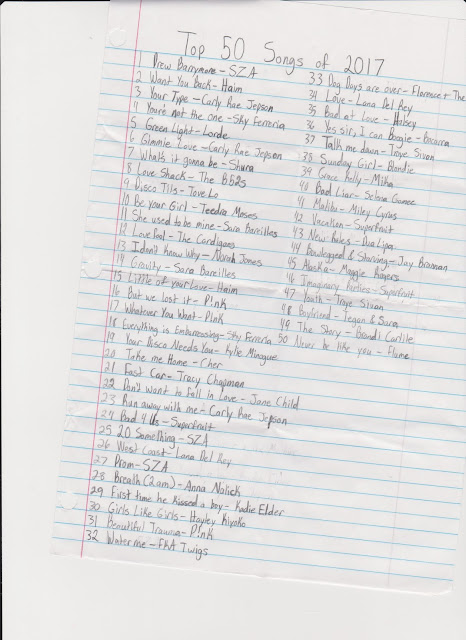 Top 50 Songs of 2017
1 Drew Barrymore - SZA
2 Want You Back - Haim
3 Your Type - Carly Rae Jepson
4 You're not the one - Sky Ferreria
5 Green Light - Lorde
6 Gimmie Love - Carly Rae Jepson
7 What's it gonna be - Shura
8 Love Shack - The B52s
9 Disco Tits - Tove Lo
10 Be your Girl - Teedra Moses
11 She used to be mine - Sara Bareilles
12 Love Fool - The Cardigans
13 I don't know Why - Norah Jones
14 Gravity - Sara Bareilles
15 Little of your Love - Haim
16 But we lost it - P!nk
17 Whatever You Want - P!nk
18 Everything is Embarrassing - Sky Ferreria
19 Your Disco Needs You - Kylie Minogue
20 Take me Home - Cher
21 Fast Car - Tracy Chapman
22 Don't want to fall in Love - Jane Child
23 Run away with me - Carly Rae Jepson
24 Bad 4 Us - Superfruit
25 20 Something - SZA
26 West Coast - Lana Del Rey
27 Prom - SZA
28 Breath (2am) - Anna Nalick
29 First time he kissed a boy - Kadie Elder
30 Girls Like Girls - Hayley Kiyoko
31 Beautiful Trauma - P!nk
32 Water me - FKA Twigs
33 Dog Days are over - Florence + The
34 Love - Lana Del Rey
35 Bad at Love - Halsey
36 Yes sir, I can Boogie - Bacarra
37 Talk me down - Troye Sivan
38 Sunday Girl - Blondie
39 Grace Kelly - Mika
40 Bad Liar - Selena Gomez
41 Malibu - Miley Cyrus
42 Vacation - Superfruit
43 New Rules - Dua Lipa
44 Bowlegged & Starving - Jay Brannan
45 Alaska - Maggie Rogers
46 Imaginary Parties - Superfruit
47 Youth - Troye Sivan
48 Boyfriend - Tegan & Sara
49 The Story - Brandi Carlile
50 Never be like you - Flume